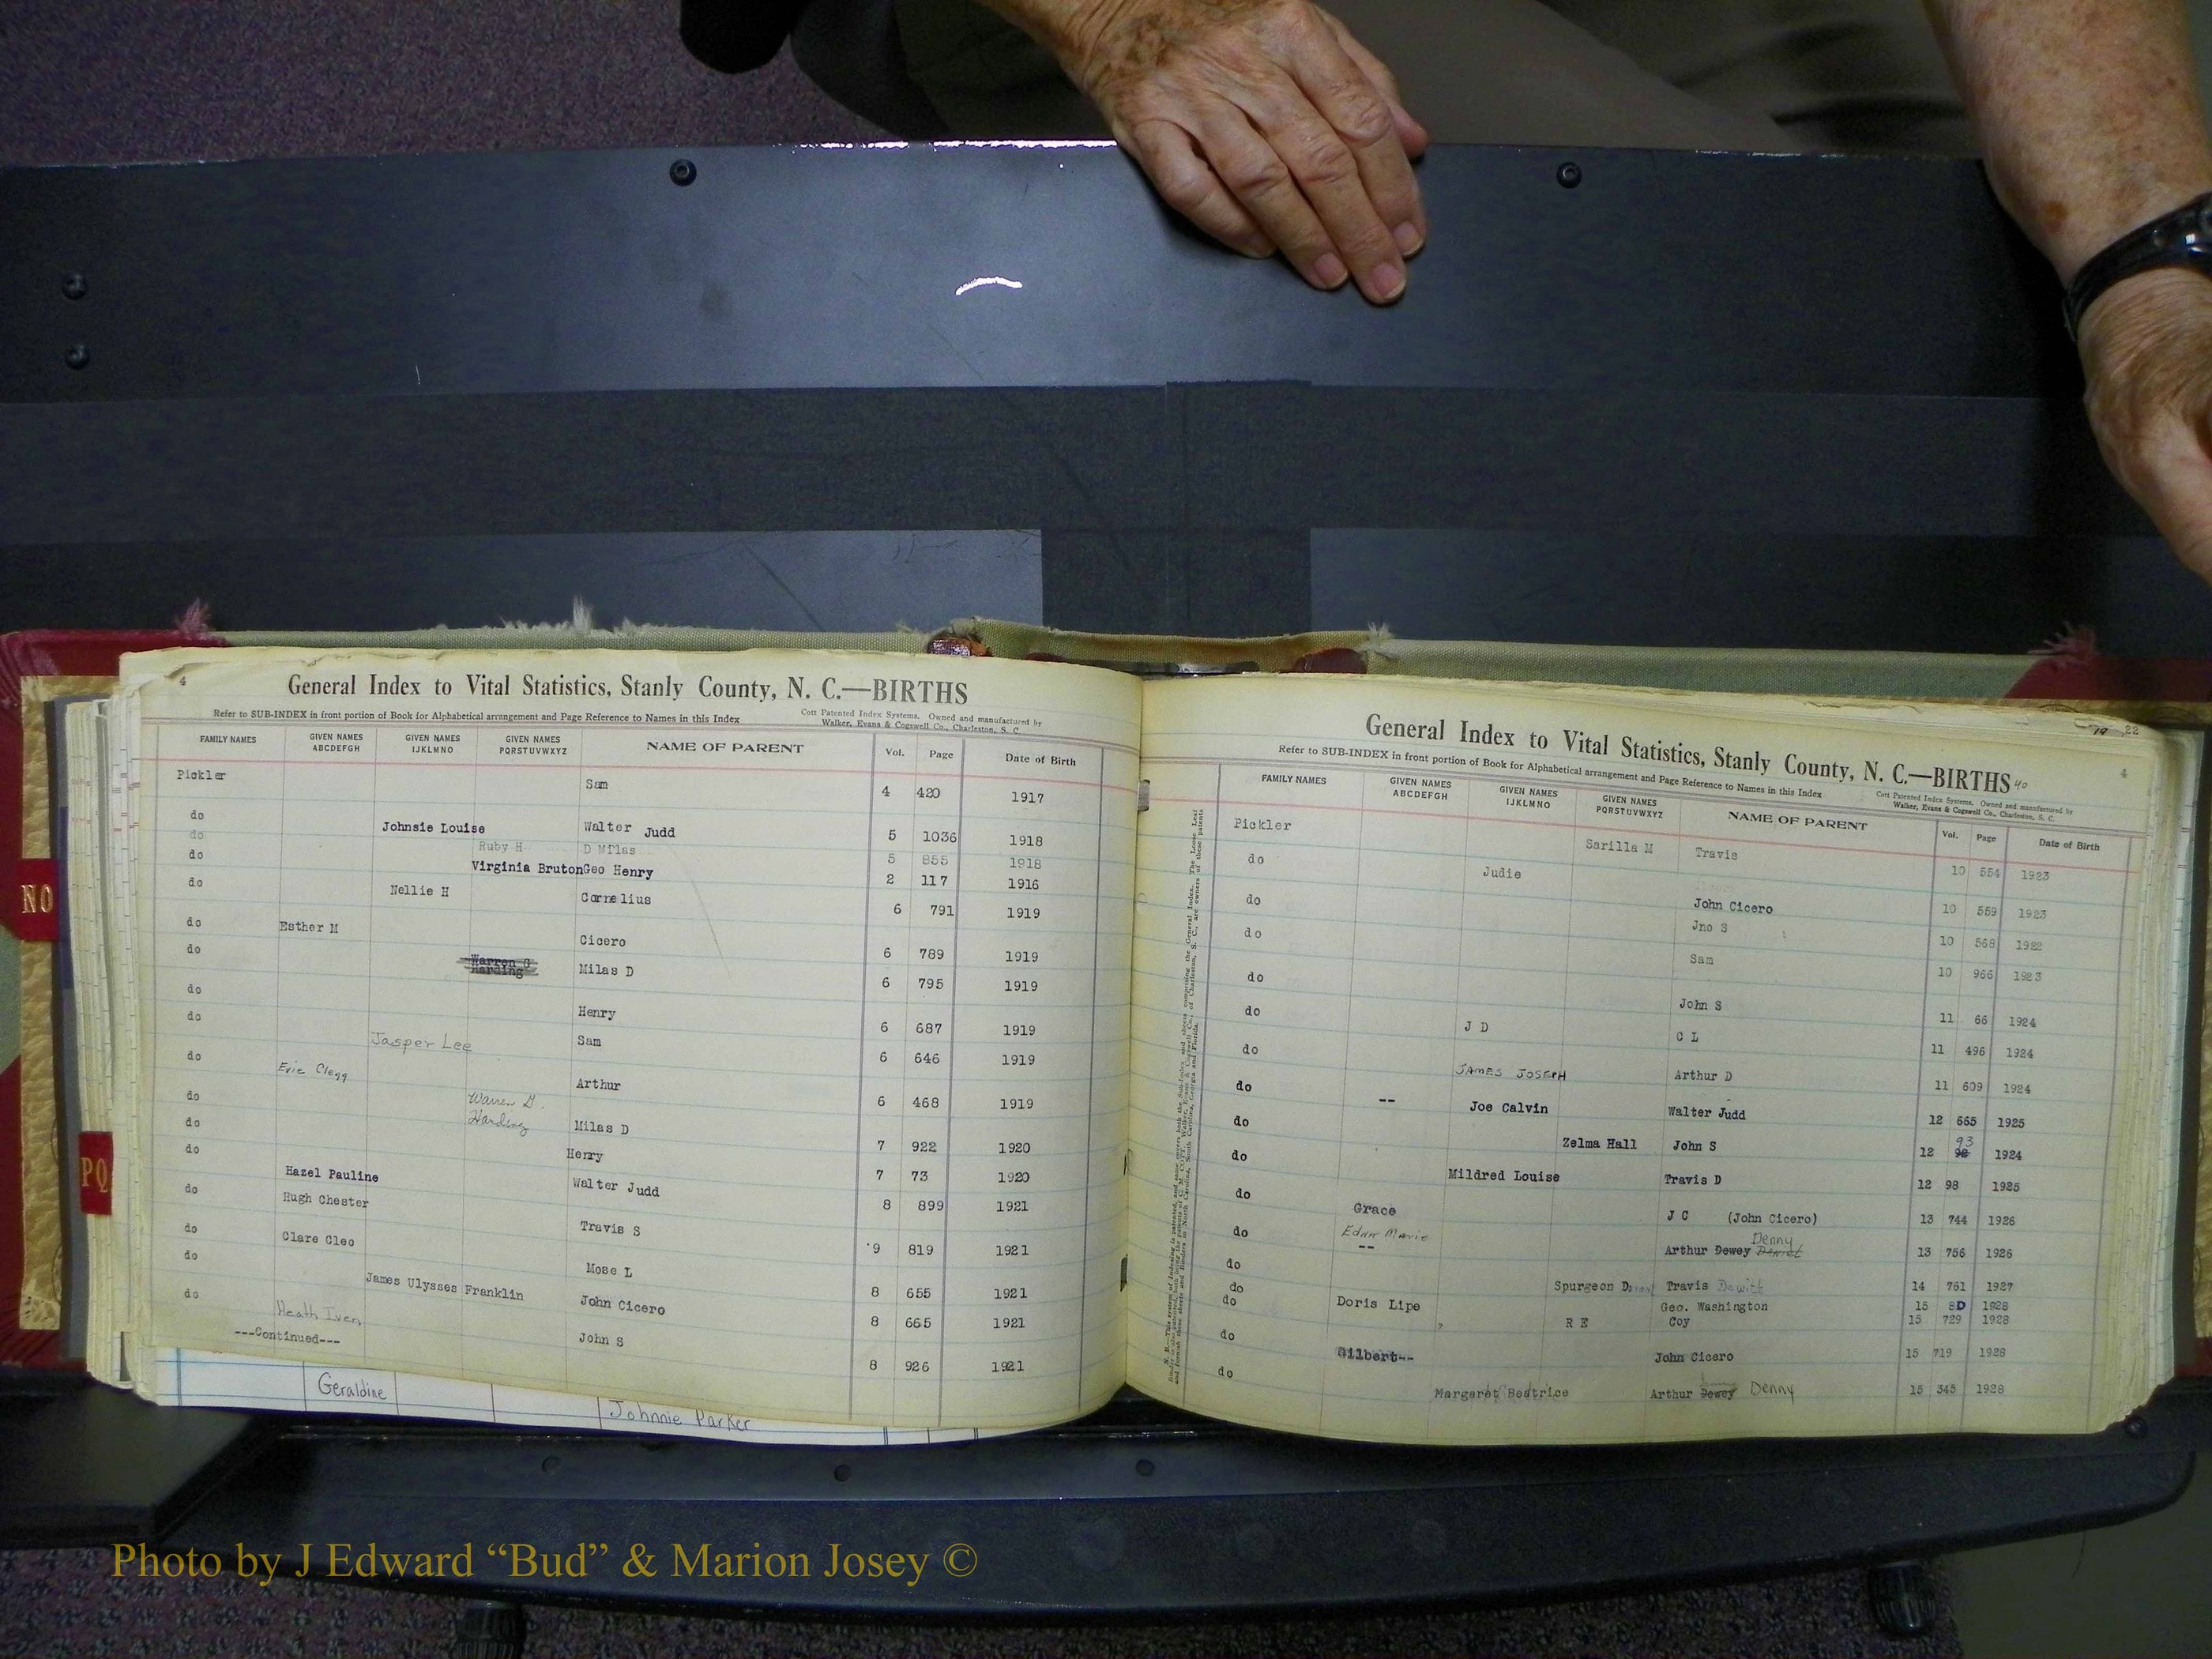 4
General Index to Vital Statistics, Stanly County, N. C.—BIRTHS
Refer to SUB-INDEX in front portion of Book for Alphabetical arrangement and Page Reference to Names in this Index
Cott Patented Index Systems. Owned and manufactured by
Walker, Evans & Cogswell Co., Charleston, S. C.
FAMILY NAMES GIVEN NAMES ABCDEFGH GIVEN NAMES IJKLMNO GIVEN NAMES PQRSTUVWXYZ NAME OF PARENT Vol. Page Date of Birth
Pickler Sam 4 420 1917
do Johnsie Louise Walter Judd 5 1036 1918
do Ruby H D Milas 5 855 1918
do Virginia Bruton Geo Henry 2 117 1916
do Nellie H Cornelius 6 791 1919
do Esther M Cicero 6 789 1919
do Warren G Harding Milas D 6 795 1919
do Henry 6 687 1919
do Jasper Lee Sam 6 646 1919
do Evie Clegg Arthur 6 468 1919
do Warren G. Harding Milas D 7 922 1920
do Henry 7 73 1920
do Hazel Pauline Walter Judd 8 899 1921
do Hugh Chester Travis S 9 819 1921
do Clare Cleo Mose L 8 655 1921
do James Ulysses Franklin John Cicero 8 665 1921
do Heath Iven John S 8 926 1921
---Continued---
Geraldine Johnnie Parker
NO
PQ
19 22
General Index to Vital Statistics, Stanly County, N. C.—BIRTHS 40
4
Refer to SUB-INDEX in front portion of Book for Alphabetical arrangement and Page Reference to Names in this Index
Cott Patented Index Systems. Owned and manufactured by
Walker, Evans & Cogswell Co., Charleston, S. C.
FAMILY NAMES GIVEN NAMES ABCDEFGH GIVEN NAMES IJKLMNO GIVEN NAMES PQRSTUVWXYZ NAME OF PARENT Vol. Page Date of Birth
Pickler Sarilla M Travis 10 554 1923
do Judie John Cicero 10 559 1923
do Jno S 10 568 1922
do Sam 10 966 1923
do John S 11 66 1924
do J D C L 11 496 1924
do JAMES JOSEPH Arthur D 11 609 1924
do -- Joe Calvin Walter Judd 12 665 1925
do Zelma Hall John S 12 93 1924
do Mildred Louise Travis D 12 98 1925
do Grace J C (John Cicero) 13 744 1926
do Edna Marie -- Arthur Dewey Denny 13 756 1926
do Spurgeon Travis Dewitt 14 761 1927
do Doris Lipe Geo. Washington 15 8D 1928
do R E Coy 15 729 1928
do Gilbert-- John Cicero 15 719 1928
do Margaret Beatrice Arthur Dewey Denny 15 345 1928
Photo by J Edward “Bud” & Marion Josey ©